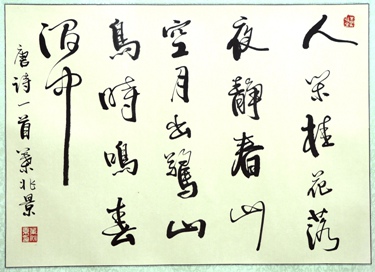 人閑桂花落
夜靜春山
空月出驚山
鳥時鳴春
澗中
唐诗一首葉兆景